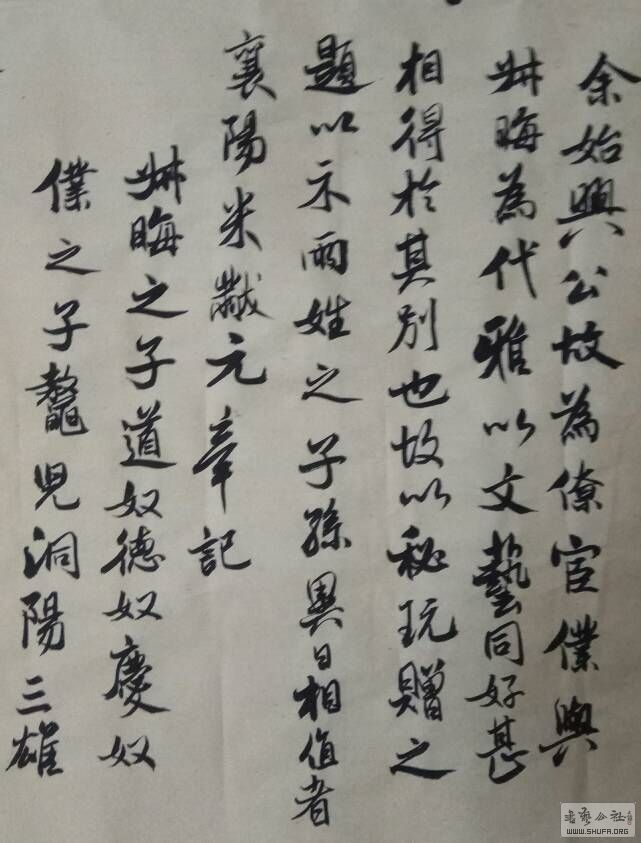 余始興公故為僚宦僕與
叔晦為代雅以文藝同好甚
相得於其別也故以秘玩贈之
題以示兩姓之子孫異日相值者
襄陽米黻元章記
叔晦之子道奴德奴慶奴
僕之子鼇兒洞陽三雄
書藝公社
WWW.SHUFA.ORG